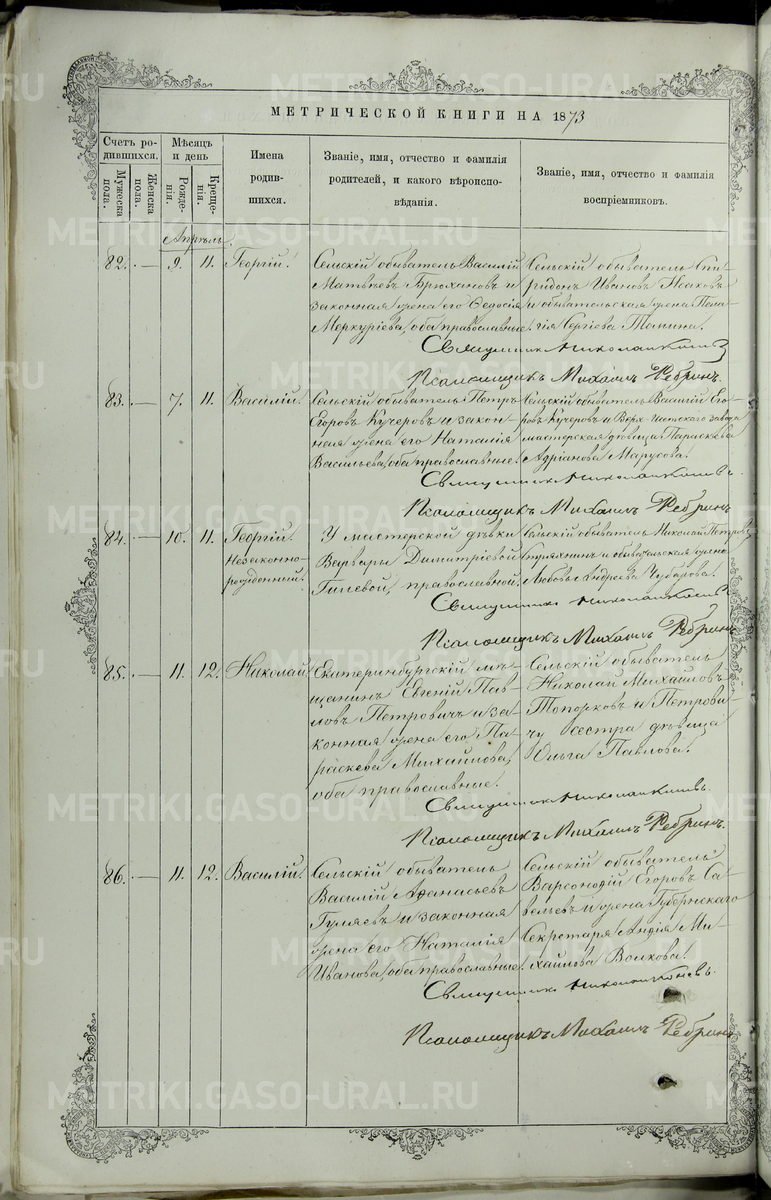 МЕТРИЧЕСКОЙ КНИГИ НА 1873
Счетъ ро-
дившихся.
Мужеска
пола.
Женска
пола.
Мѣсяцъ
и день
Рожде-
нія.
Креще-
нія.
Имена
родив-
шихся.
Званіе, имя, отчество и фамилія
родителей, и какого вѣроиспо-
вѣданія.
Званіе, имя, отчество и фамилія
воспріемниковъ.
Апрѣль.
82. — 9. 11. Георгій.
Сельскій обыватель Василій
Матвѣевъ Брюхановъ и
законная жена его Ѳедосія
Меркуріева, оба православные.
Сельскій обыватель Спи-
ридонъ Ивановъ Исаковъ
и обывательская жена Пела-
гія Сергіева Томина.
Священникъ Николай
Псаломщикъ Михаилъ Ребринъ.
83. — 7. 11. Василій.
Сельскій обыватель Петръ
Егоровъ Кучеровъ и закон-
ная жена его Наталія
Васильева, оба православные.
Сельскій обыватель Василій Его-
ровъ Кучеровъ и Верх-Исетскаго завода
мастерская дѣвица Параскева
Адріанова Марусова.
Священникъ Николай
Псаломщикъ Михаилъ Ребринъ
84. — 10. 11. Георгій.
Незаконно-
рожденный.
У мастерской дѣвки
Варвары Димитріевой
православной.
Сельскій обыватель Николай Петровъ
и обывательская жена
Любовь Андреева Чубарова.
Священникъ Николай
Псаломщикъ Михаилъ Ребринъ
85. — 11. 12. Николай.
Екатеринбургскій мѣ-
щанинъ Евгеній Пав-
ловъ Петровичъ и за-
конная жена его Па-
раскева Михайлова,
оба православные.
Сельскій обыватель
Николай Михайловъ
Топорковъ и Петрови-
чу сестра дѣвица
Ольга Павлова.
Священникъ Николай
Псаломщикъ Михаилъ Ребринъ.
86. — 11. 12. Василій.
Сельскій обыватель
Василій Аѳанасьевъ
Гуляевъ и законная
жена его Наталія
Иванова, оба православные.
Сельскій обыватель
Варсонофій Егоровъ Са-
вельевъ и жена Губернскаго
Секретаря Ми-
хайлова Волкова.
Священникъ Николай
Псаломщикъ Михаилъ Ребринъ
METRIKI.GASO-URAL.RU